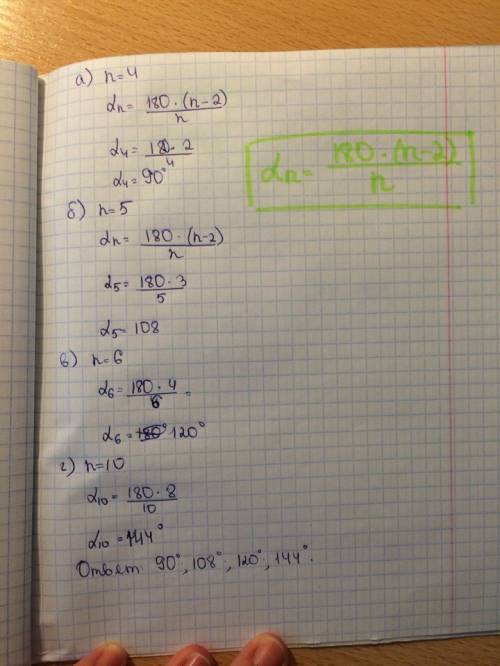 а) n=4
αn = 180·(n-2)/n
α4 = 180·2/4
α4 = 90°
αn = 180·(n-2)/n
б) n=5
αn = 180·(n-2)/n
α5 = 180·3/5
α5 = 108
в) n=6
α6 = 180·4/6 =
α6 = 120°
г) n=10
α10 = 180·8/10
α10 = 144°
Ответ: 90°, 108°, 120°, 144°.